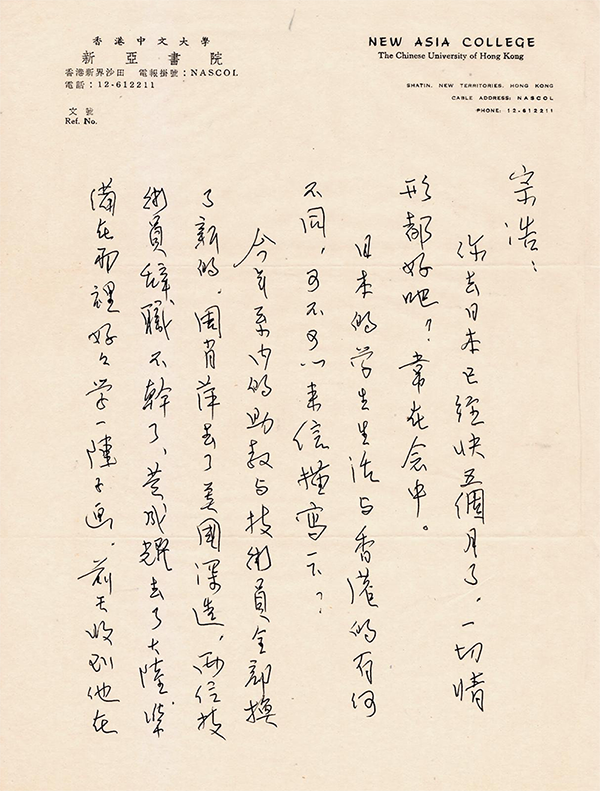 香港中文大學
新亞書院
香港新界沙田 電報掛號:NASCOL
電話:12-612211
文號
Ref. No.
NEW ASIA COLLEGE
The Chinese University of Hong Kong
SHATIN, NEW TERRITORIES, HONG KONG
CABLE ADDRESS: NASCOL
PHONE: 12-612211
宗浩:
你去日本已經快五個月了,一切情
形都好吧?常在念中。
日本的学生生活与香港的有何
不同,可不可以来信描寫一下?
今年系内的助教与技術員全部換
了新的,周肖萍去了美國深造,两位技
術員辞職不幹了,黄成耀去了大陸,準
備在那裡好々学一陣子画。前天收到他在